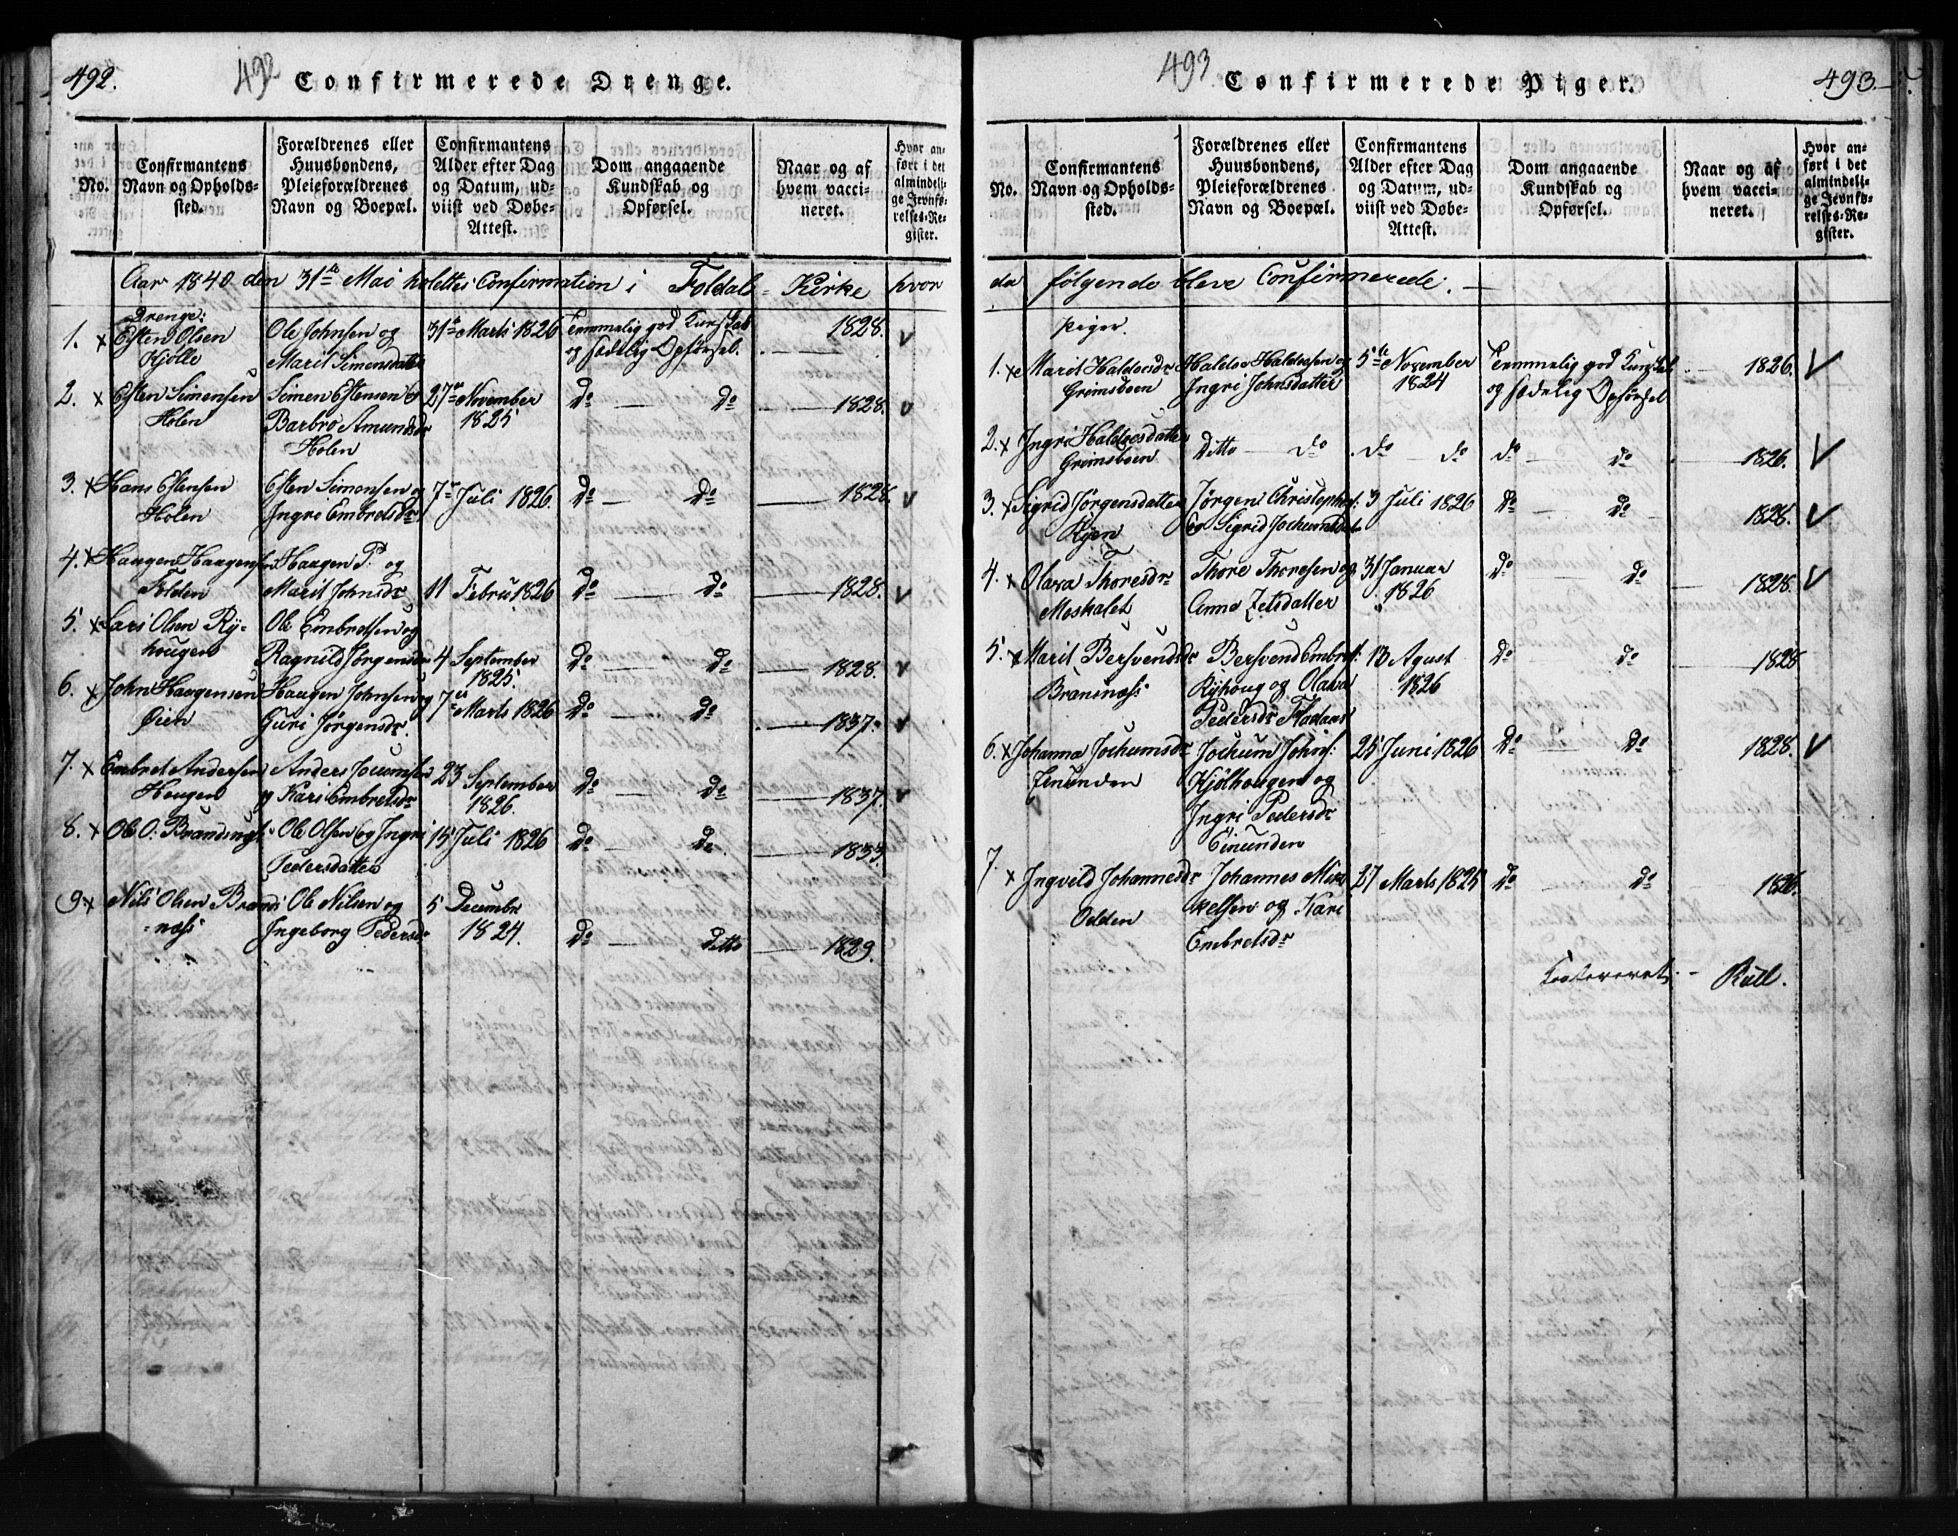 492.
492
Confirmerede Drenge.
No.
Confirmantens Navn og Opholds-sted.
Forældrenes eller Huusbondens, Pleieforældrenes Navn og Boepæl.
Confirmantens Alder efter Dag og Datum, ud-viist ved Døbe-Attest.
Dom angaaende Kundskab og Opførsel.
Naar og af hvem vacci-neret.
Hvor an-ført i det almindeli-ge Jevnfø-relses-Re-gister.
Aar 1840 den 31te Mai holdtes Confirmation i Foldals Kirke hvor
Drenge:
1. x Esten Olsen Ole Johnsen og 31te Marts 1826 Temmelig god Kunskab 1828. v
Kjølle Marit Simensdatter og sædelig Opførsel.
2. x Esten Simensen Simen Estensen og 27de November do do 1828. v
Holen Barbro Amundsdr 1825
Holen
3. x Hans Estensen Esten Simensen og 7de Juli 1826. do do 1828. v
Holen Ingri Embretsdr
4. x Haagen Haagensen Haagen P. og
Folden Marit Johnsdr 11 Febru 1826 do do 1828. v
5. x Lars Olsen Ry- Ole Embretsen og
hougen Ragnild Jørgensdr 4 September do do 1828. v
1825.
6. x John Haagensen Haagen Johnsen og 7de Marts 1826 do do
Øien Guri Jørgensdr. 1837. v
7. x Embret Andersen Anders Jocumsen 23 September do do
Hougen og Kari Embretsdr 1826. 1837. v
8. x Ole O. Brandsnæs Ole Olsen og Ingri 15 Juli 1826 do do
Pedersdatter 1833.
9 x Nils Olsen Brands Ole Nilsen og 5 December
næs Ingeborg Pedersdr 1824. do ditto 1829.
493
Confirmerede Piger.
493.
No.
Confirmantens Navn og Opholds-sted.
Forældrenes eller Huusbondens, Pleieforældrenes Navn og Boepæl.
Confirmantens Alder efter Dag og Datum, ud-viist ved Døbe-Attest.
Dom angaaende Kundskab og Opførsel.
Naar og af hvem vacci-neret.
Hvor an-ført i det almindeli-ge Jevnfø-relses-Re-gister.
da følgende bleve Confirmerede.
Piger.
1. x Marit Haldosdr Haldo Haldosen og 5te November Temmelig god Kunskab 1826. v
Grimsboen Ingri Johnsdatter 1824 og sædelig Opførsel
2. x Ingri Haldosdatter Ditto do do do do do
Grimsboen 1826. v
3. x Sigrid Jørgensdatter Jørgen Christophers: 3 Juli 1826 do do
Ryen og Sigrid Jochumsdatr 1828. v
4. x Olava Thoresdr Thore Thoresen og 31 Januar do do
Moskalet Anne 1826 1828. v
5. x Marit Bersvendsdr Bersvend Embrets: 13 Agust do do 1828
Bransnæs Ryhoug og Olava 1826
Pedersdr
6. x Johanna Jochumsdr Jochum Johns: 25 Juni 1826 do do 1828. v
Kjølhougen og
Ingri Pedersdr
Einunden
7. x Ingveld Johannesdr Johannes Mik- 27 Marts 1825 do do 1826.
Odden kelsen og Kari
Embretsdr